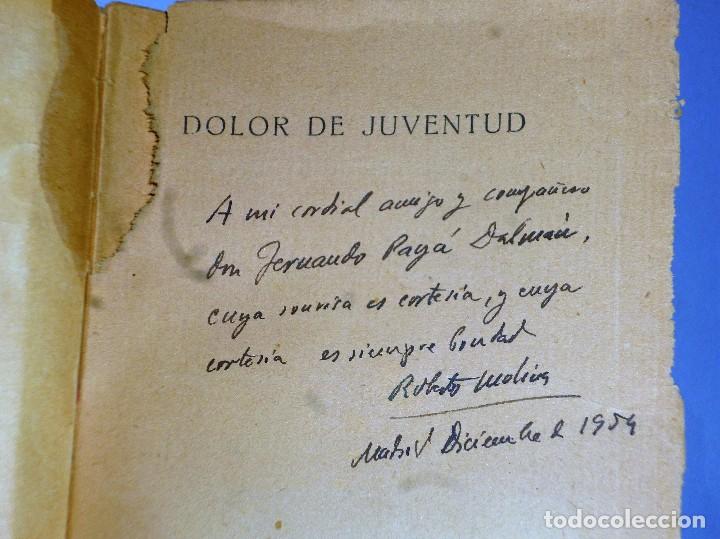 DOLOR DE JUVENTUD
A mi cordial amigo y compañero
don Fernando Payá Dalmáu,
cuya sonrisa es cortesía, y cuya
cortesía es siempre bondad
Roberto Molina
Madrid Diciembre d 1954
todocoleccion
todocoleccion.net